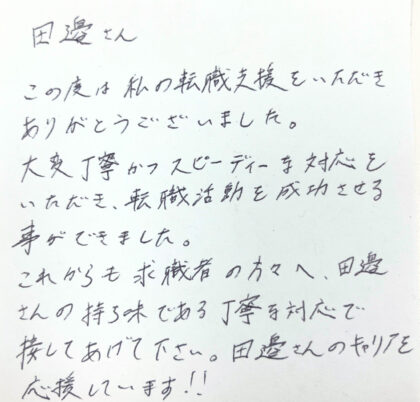 田邊さん
この度は私の転職支援をいただき
ありがとうございました。
大変丁寧かつスピーディーな対応を
いただき、転職活動を成功させる
事ができました。
これからも求職者の方々へ、田邊
さんの持ち味である丁寧な対応で
接してあげて下さい。田邊さんのキャリアを
応援しています!!